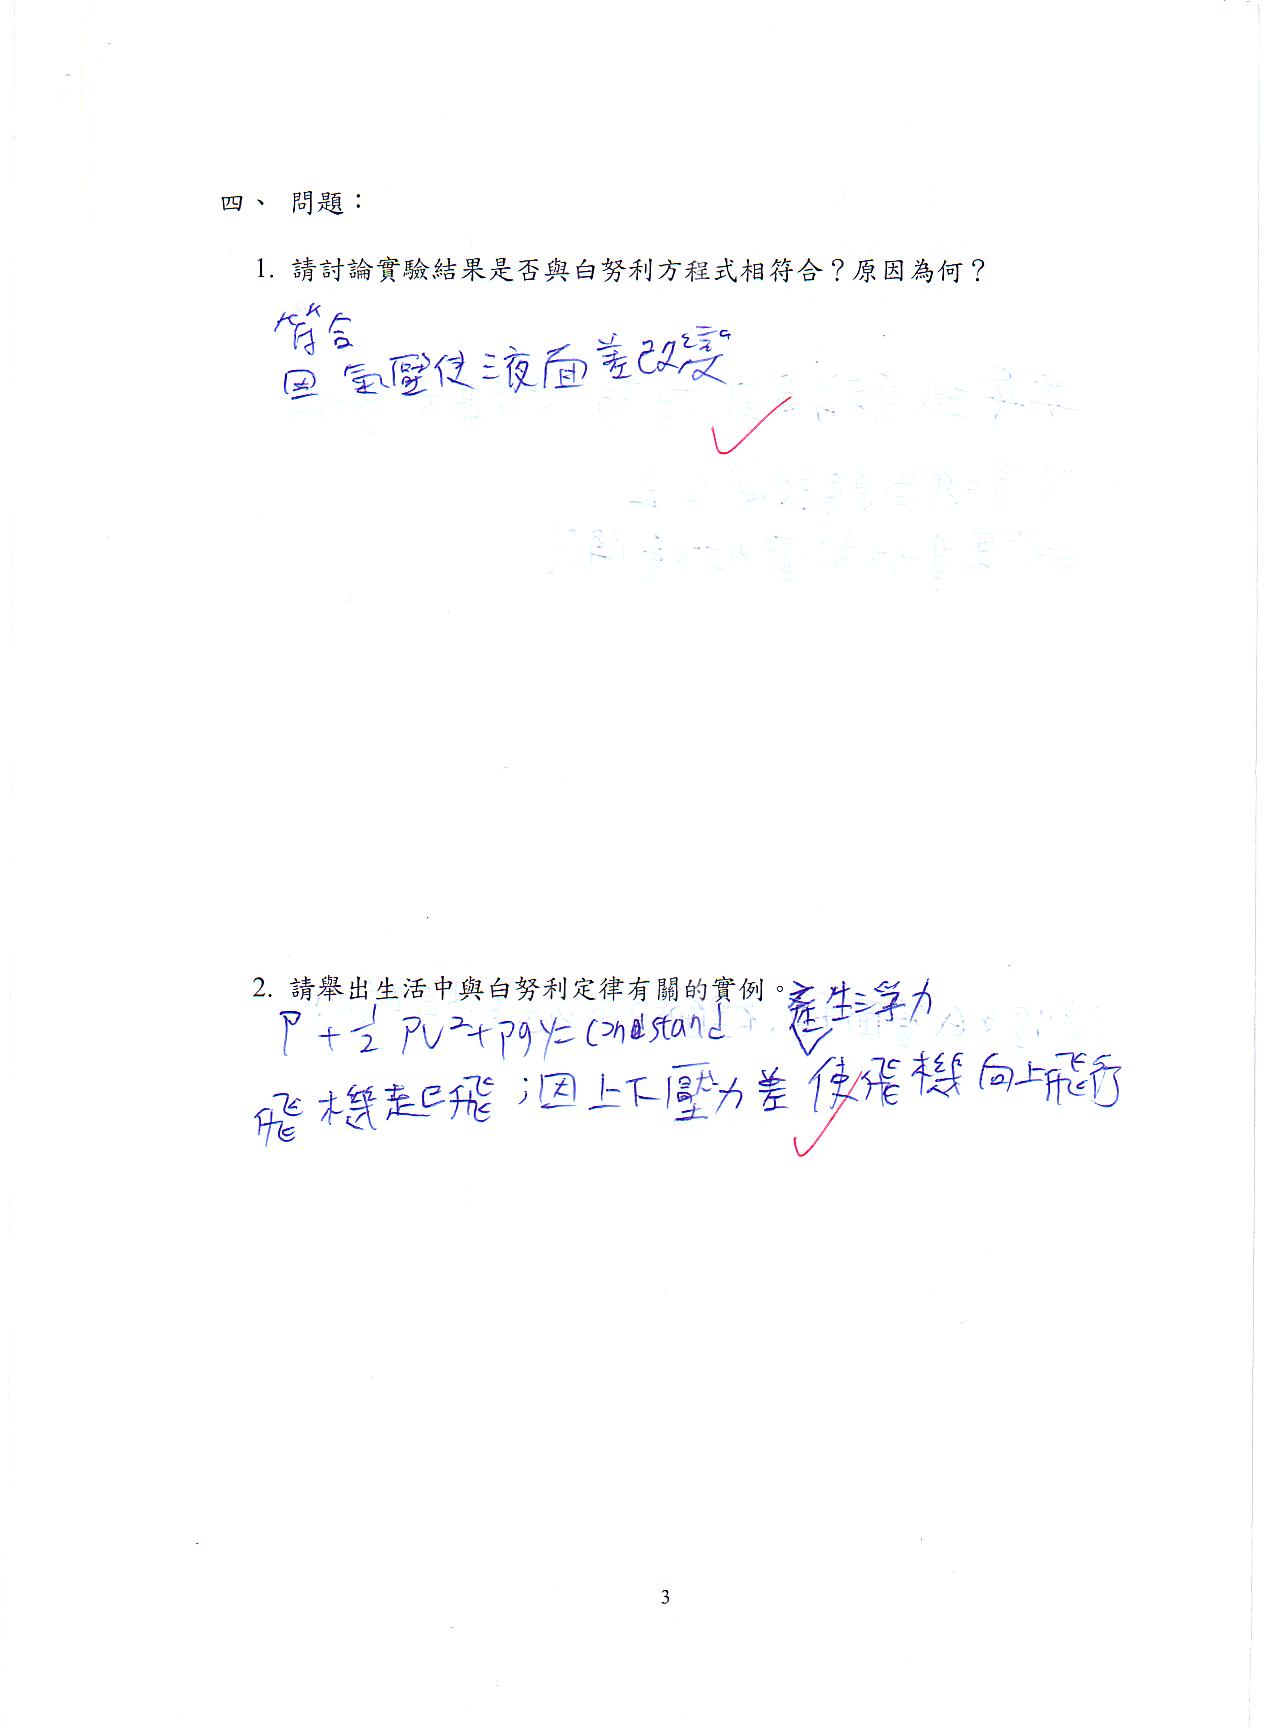 四、 問題：
1. 請討論實驗結果是否與白努利方程式相符合？原因為何？
符合
因氣壓使液面差改變
2. 請舉出生活中與白努利定律有關的實例。
產生浮力
P + 1/2 ρv² + ρgy = constand
飛機起飛；因上下壓力差使飛機向上飛行
3